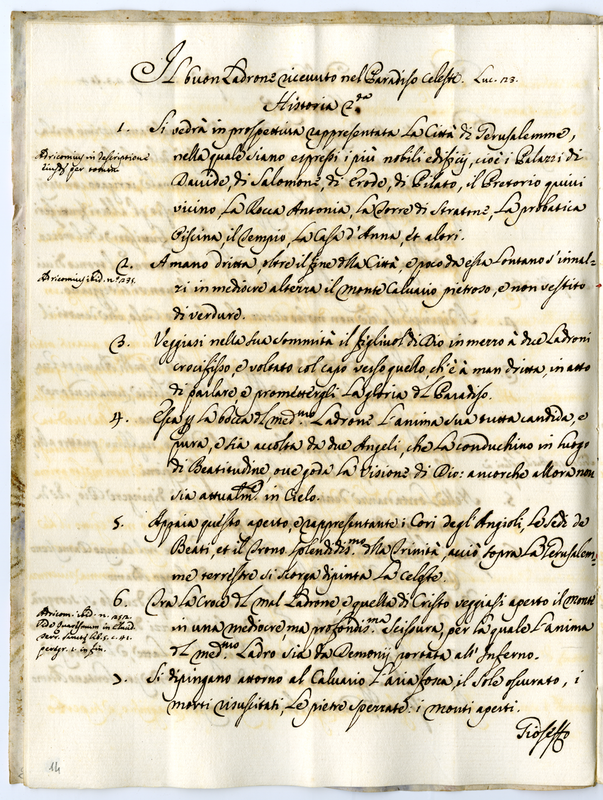 Il buon Ladrone ricevuto nel Paradiso Celeste. Luc. 23.
Historia 2.da
1. Si vedrà in prospettiva rappresentata La Città di Jerusalemme,
Adricomius in descriptione
nella quale siano espressi i più nobili edificij, cioè i Palazzi di
Davide, di Salomone, di Erode, di Pilato, il Pretorio quivi
vicino, La Rocca Antonia, La Torre di Stratone, La probatica
Piscina, il Tempio, La Casa d'Anna, et altri.
2. A mano dritta, oltre il fine della Città, e poco da essa lontano s'innal=
Adricomius ibid. n.o 235.
zi in mediocre altezza il monte Calvario pietroso, e non vestito
di verdure.
3. Veggiasi nella sua sommità il figliuol di Dio in mezzo à due Ladroni
crocifisso, e voltato col capo verso quello ch'è à man dritta, in atto
di parlare, e promettergli La gloria del Paradiso.
4. Esca p la bocca del med.mo Ladrone L'anima sua tutta candida, e
pura, e sia accolta da due Angeli, che La conduchino in luogo
di Beatitudine, ove goda La Visione di Dio: ancorche allora non
sia attualm. in Cielo.
5. Appaia questo aperto, e rappresentante i Cori degl'Angioli, Le sedi de
Beati, et il Trono splendidis.mo della Trinità, acciò sopra La Jerusalem=
me terrestre si scorga dipinta La Celeste.
6. Tra La Croce del mal Ladrone e quella di Cristo veggiasi aperto il monte
Adricom. ibid. n. 252.
in una mediocre, ma profondis.ma scissura, per La quale L'anima
del med.mo Ladro sia da Demonij portata all'Inferno.
in fin.
7. Si dipingano attorno al Calvario L'aria fosca, il Sole oscurato, i
morti risuscitati, Le pietre spezzate: i monti aperti.
Gioseffo
14